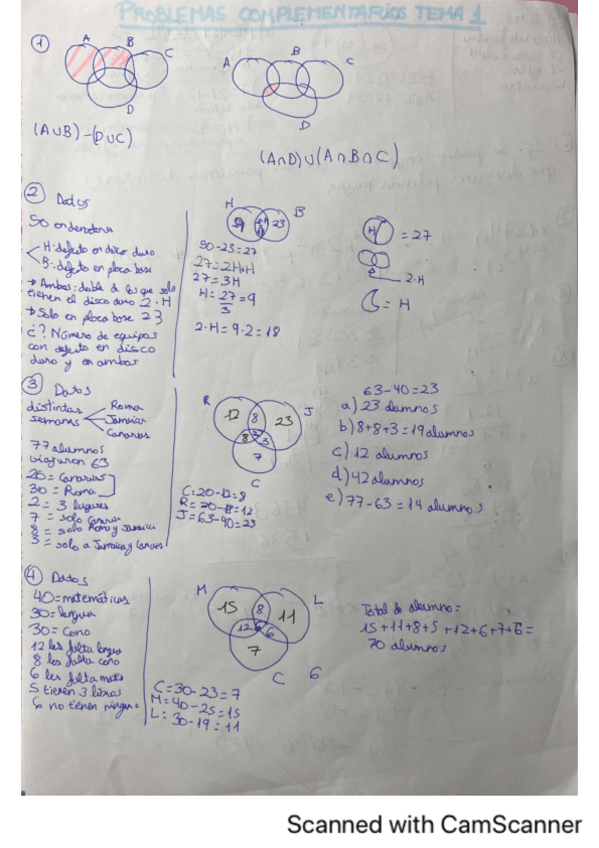 PROBLEMAS COMPLEMENTARIOS TEMA 1
1
A B C
D
(A∪B) - (D∪C)
A B C
D
(A∩D)∪(A∩B∩C)
2 Datos
50 ordenadores
H: defecto en disco duro
B: defecto en placa base
→ Ambas: doble de los que solo
tienen el disco duro 2·H
→ Solo en placa base 23
¿? Número de equipos
con defecto en disco
duro y en ambas
H B
9 23
50-23=27
27=2H+H
27=3H
H=27/3=9
2·H=9·2=18
H = 27
2·H
= H
3 Datos
distintas
semanas
Roma
Jamaica
Canarias
77 alumnos
viajaron 63
20 = Canarias
30 = Roma
2 = 3 lugares
7 = solo Canarias
8 = solo Roma y Jamaica
3 = solo a Jamaica y Canarias
R J
12 8 23
8 2 3
7
C
C=20-12=8
R=20-18=12
J=63-40=23
63-40=23
a) 23 alumnos
b) 8+8+3=19 alumnos
c) 12 alumnos
d) 42 alumnos
e) 77-63=14 alumnos
4 Datos
40=matemáticas
30=lengua
30=cono
12 les falta lengua
8 les falta cono
6 les falta mates
5 tienen 3 libros
6 no tienen ninguno
M L
15 8 11
12 6
7
C 6
C=30-23=7
M=40-25=15
L=30-19=11
Total de alumno=
15+11+8+5+12+6+7+6=
70 alumnos
Scanned with CamScanner